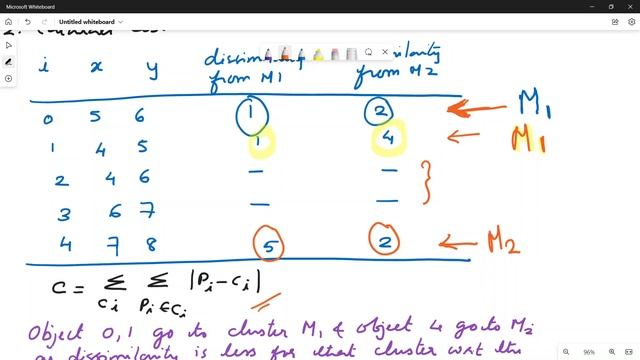 Microsoft Whiteboard
Untitled whiteboard
i x y from M1 from M2
0 5 6 1 2 M1
1 4 5 1 4 M1
2 4 6 — —
3 6 7 — —
4 7 8 5 2 M2
C = Σ Σ |Pi - Ci|
Ci Pi ∈ Ci
Object 0,1 go to cluster M1 & object 4 go to M2
dissimilarity is less for that cluster
96%